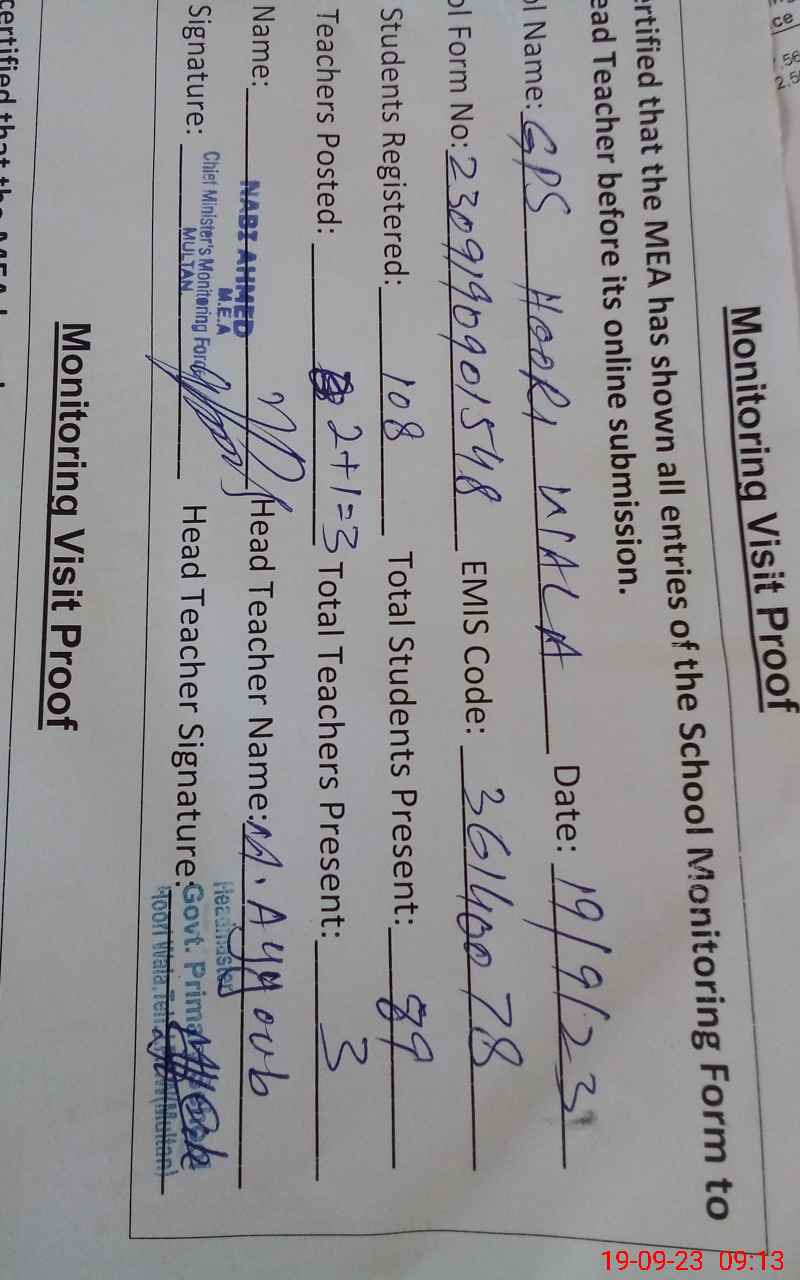 Monitoring Visit Proof
ertified that the MEA has shown all entries of the School Monitoring Form to
ead Teacher before its online submission.
ol Name: GPS HOORI WALA Date: 19/9/23
ol Form No: 2309190901548 EMIS Code: 36140078
Students Registered: 108 Total Students Present: 89
Teachers Posted: 2+1=3 Total Teachers Present: 3
Name: NABI AHMED Head Teacher Name: M. Ayyoub
M.E.A
Chief Minister's Monitoring Force
MULTAN
Signature: Head Teacher Signature:
Headmaster
Govt. Primary
Hoori Wala (Multan)
Monitoring Visit Proof
certified that the MEA
19-09-23 09:13